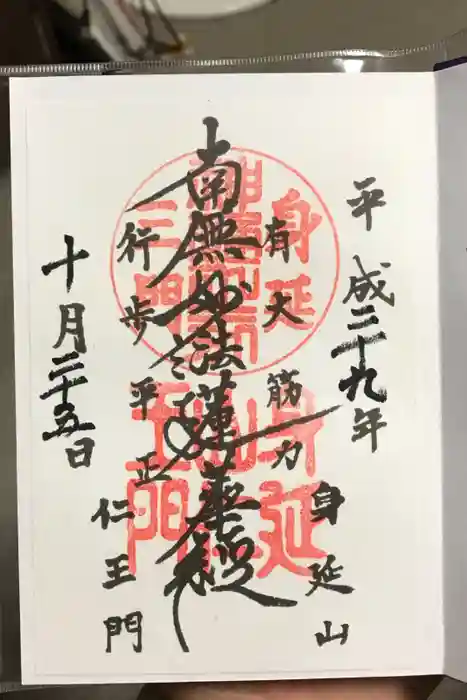 平成二十九年
身延山
有大筋力
南無妙法蓮華経
行歩平正
仁王門
十月二十五日
身延
三門
身延
山
三門